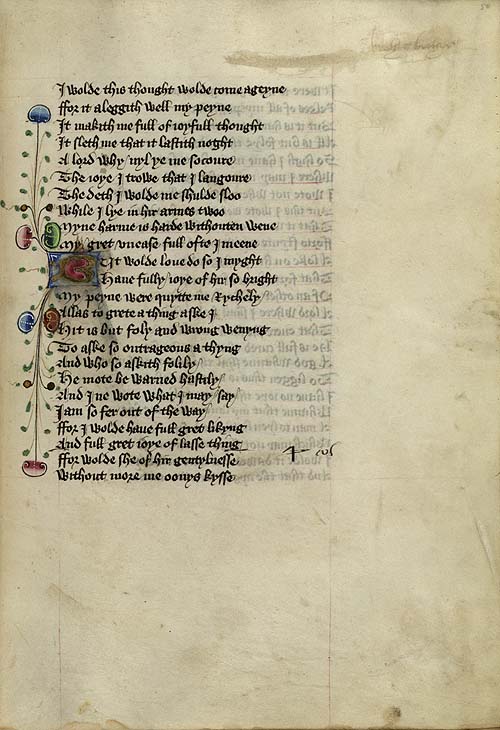 I wolde this thought wolde come ageyne
ffor it aleggith well my peyne
It makith me full of ioyfull thought
It sleth me that it lastith noght
A lord why nyl ye me socoure
The ioye I trowe that I langoure
The deth I wolde me shulde sloo
While I lye in hir armes twoo
Myne harme is harde withouten wene
My gret vnease full ofte I meene
But wolde love do so I myght
Have fully ioye of hir so bright
My peyne were quytte me Rychely
Allas to grete a thing aske I
Hit is but foly and wrong wenyng
To aske so outrageous a thyng
And who so askith folily
He mote be warned hastily
And I ne wote what I may say
I am so fer out of the way
ffor I wolde haue full gret likyng
And full gret ioye of lasse thing
ffor wolde she of hir gentylnesse
Without more me oonys kysse